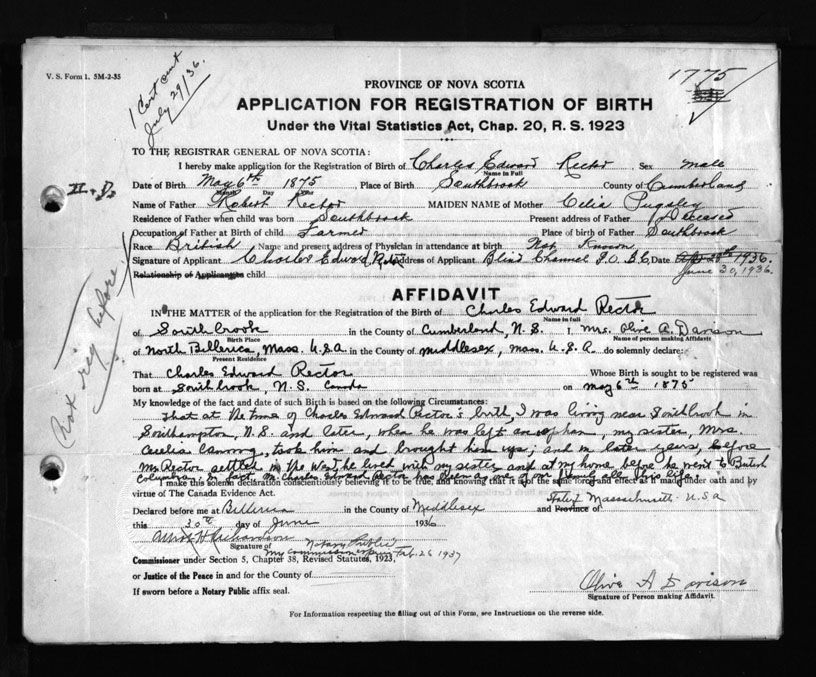 V. S. Form 1. 5M-2-35
1 Cert out
July 29/36.
1775
PROVINCE OF NOVA SCOTIA
APPLICATION FOR REGISTRATION OF BIRTH
Under the Vital Statistics Act, Chap. 20, R. S. 1923
TO THE REGISTRAR GENERAL OF NOVA SCOTIA:
I hereby make application for the Registration of Birth of Charles Edward Rector Sex male
Name in Full
Date of Birth May 6th 1875 Place of Birth Southbrook County of Cumberland
Month Day Year
Name of Father Robert Rector MAIDEN NAME of Mother Celia Pugsley
Residence of Father when child was born Southbrook Present address of Father Deceased
Occupation of Father at Birth of child Farmer Place of birth of Father Southbrook
Race British Name and present address of Physician in attendance at birth Not Known
Signature of Applicant Charles Edward Rector Address of Applicant Blind Channel P.O. B.C. Date 1936.
June 30, 1936.
Relationship of Applicant to child
Not reg before.
AFFIDAVIT
IN THE MATTER of the application for Registration of the Birth of Charles Edward Rector
Name in full
of Southbrook in the County of Cumberland, N.S. I, Mrs. Olive A. Davison
Birth Place Name of person making Affidavit
of North Billerica, Mass. U.S.A in the County of Middlesex, Mass. U.S.A do solemnly declare:
Present Residence
That Charles Edward Rector Whose Birth is sought to be registered was
born at Southbrook, N.S. Canada on May 6th 1875
My knowledge of the fact and date of such Birth is based on the following Circumstances:
That at the time of Charles Edward Rector's birth, I was living near Southbrook in
Southampton, N.S. and later, when he was left an orphan, my sister, Mrs.
Cecelia Canning, took him and brought him up, and in later years, before
Mr Rector settled in the West, he lived with my sister and at my home before he went to British
Columbia; in fact, Mr. Charles Edward Rector has been all his life.
I make this solemn declaration conscientiously believing it to be true, and knowing that it is of the same force and effect as if made under oath and by
virtue of The Canada Evidence Act.
Declared before me at Billerica in the County of Middlesex and Province of State Massachusetts U.S.A
this 30th day of June 1936
Richardson
Signature of Notary Public
My commission expires Feb. 26 1937
Commissioner under Section 5, Chapter 38, Revised Statutes, 1923,
or Justice of the Peace in and for the County of
If sworn before a Notary Public affix seal.
Olive A Davison
Signature of Person making Affidavit.
For Information respecting the filling out of this Form, see Instructions on the reverse side.